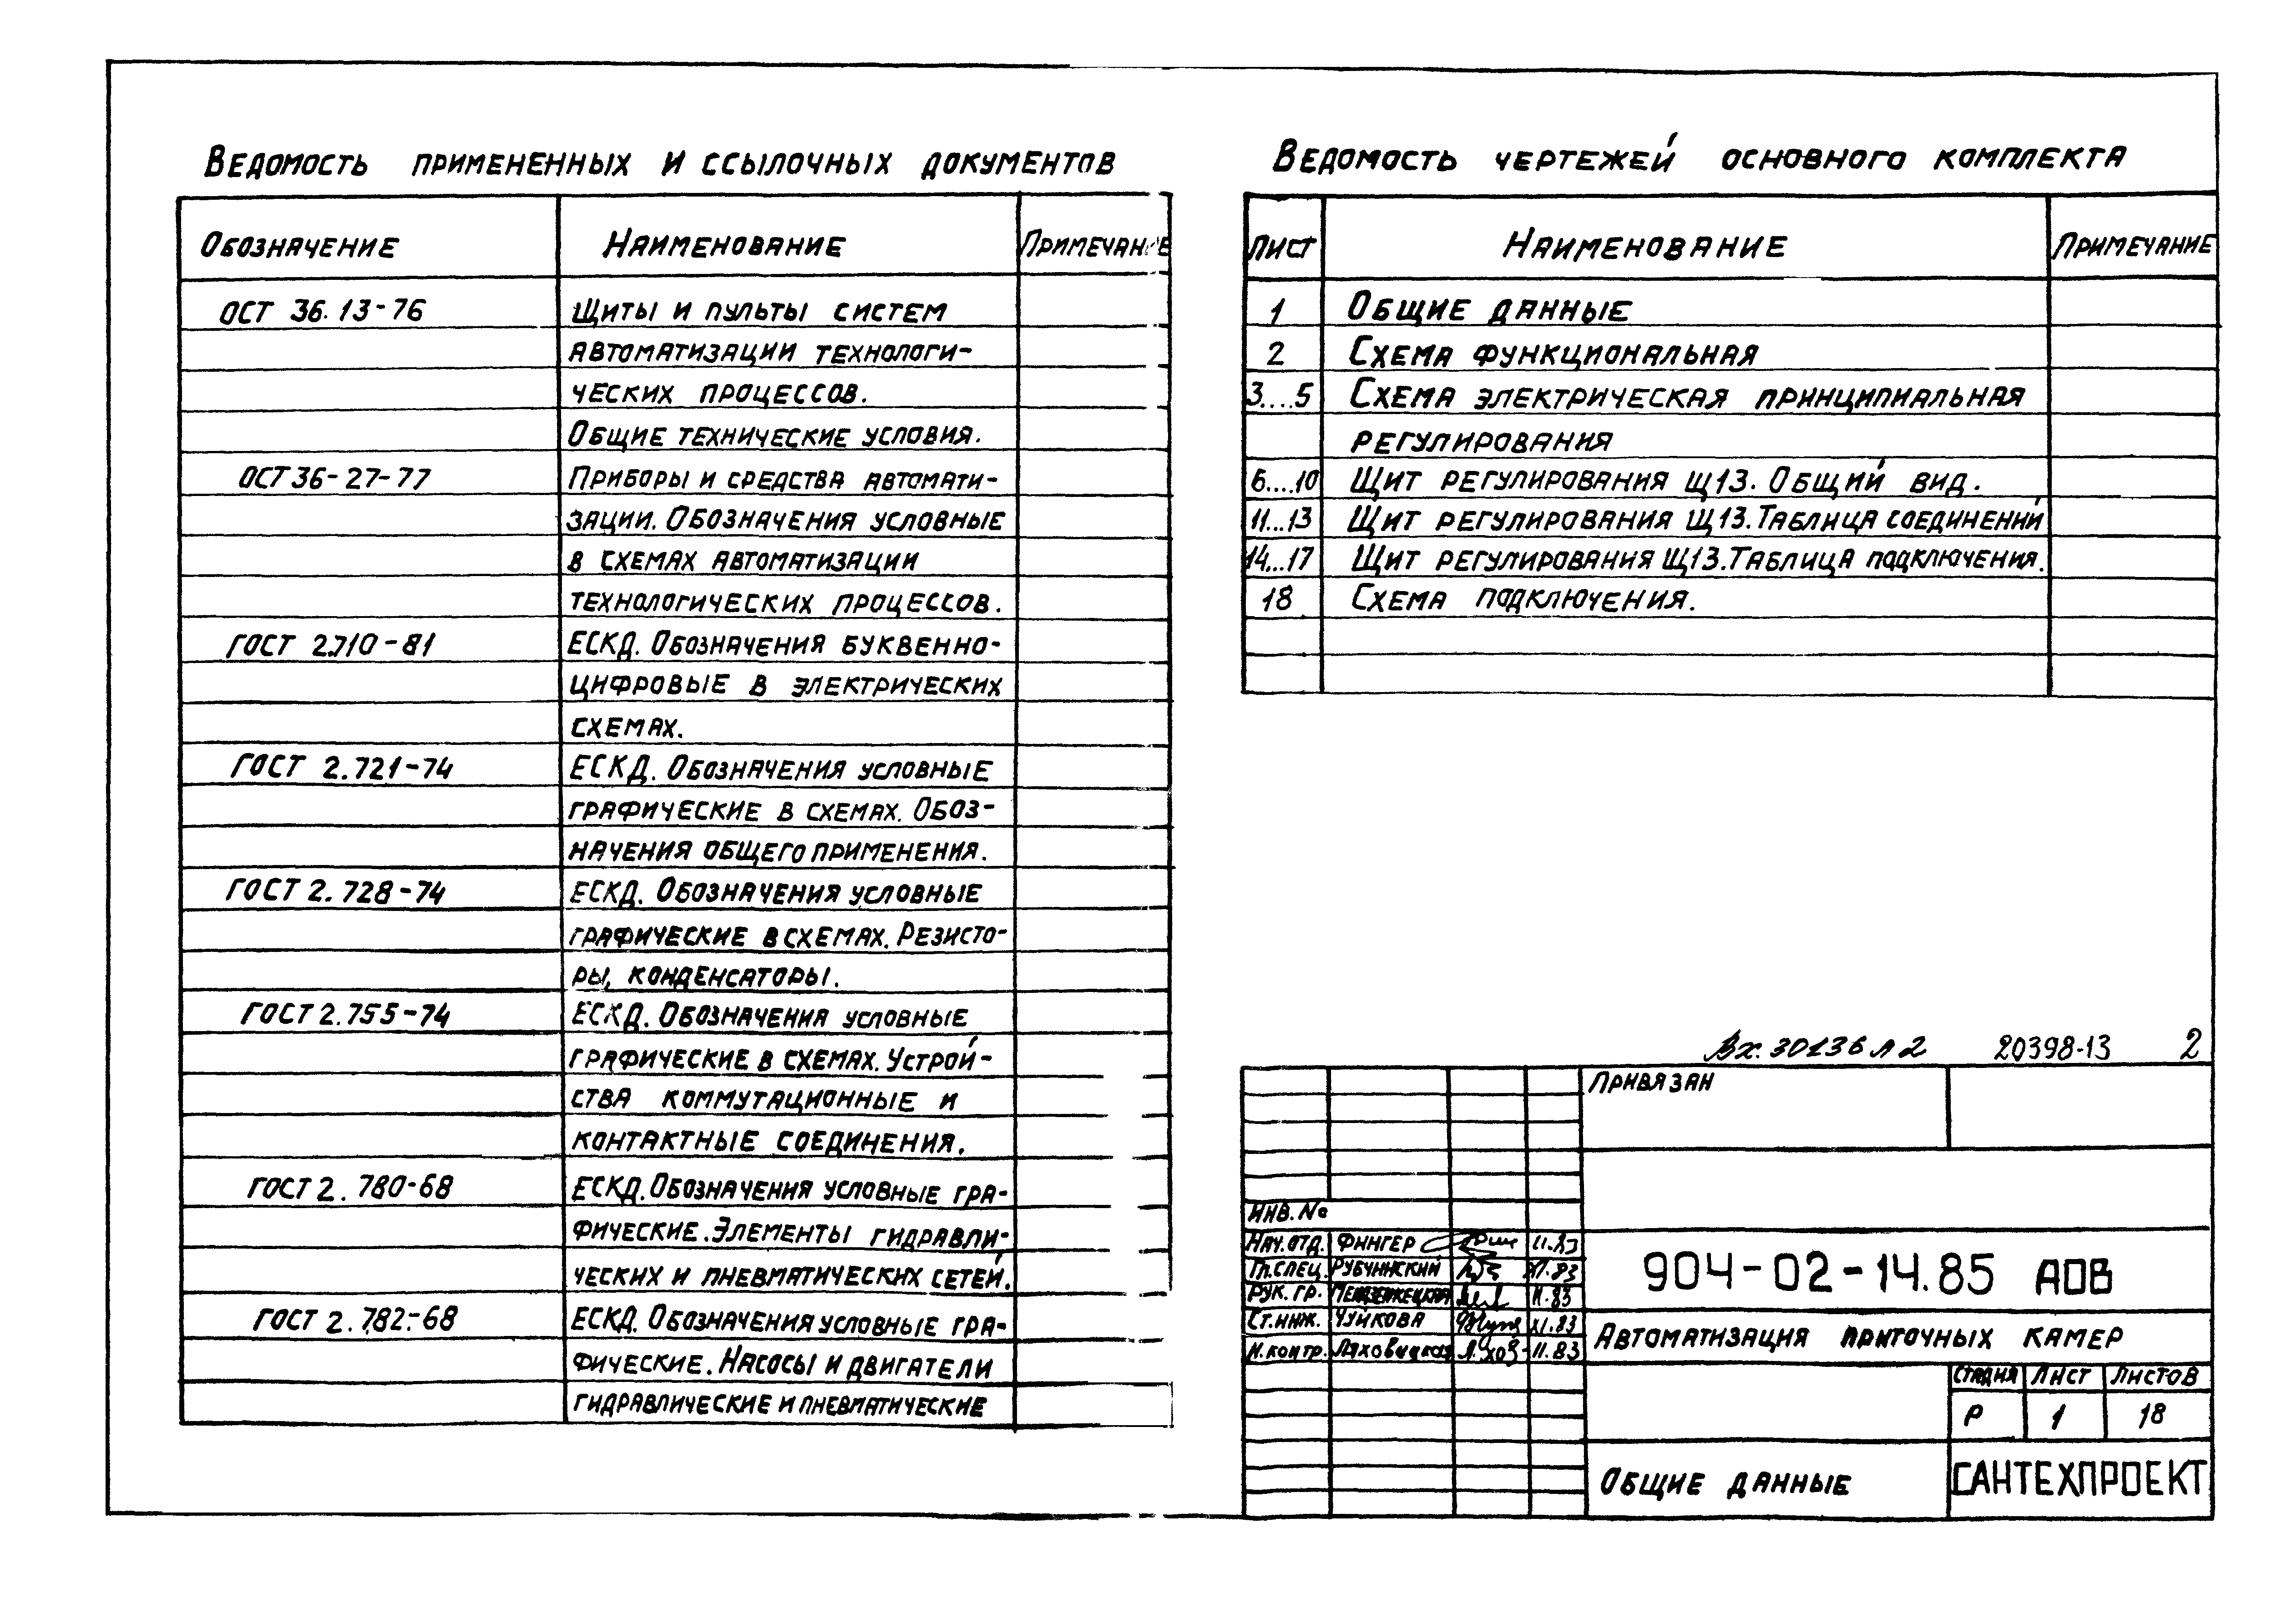 Ведомость примененных и ссылочных документов
Обозначение Наименование Примечание
ОСТ 36.13-76 Щиты и пульты систем
автоматизации технологи-
ческих процессов.
Общие технические условия.
ОСТ 36-27-77 Приборы и средства автомати-
зации. Обозначения условные
в схемах автоматизации
технологических процессов.
ГОСТ 2.710-81 ЕСКД. Обозначения буквенно-
цифровые в электрических
схемах.
ГОСТ 2.721-74 ЕСКД. Обозначения условные
графические в схемах. Обоз-
начения общего применения.
ГОСТ 2.728-74 ЕСКД. Обозначения условные
графические в схемах. Резисто-
ры, конденсаторы.
ГОСТ 2.755-74 ЕСКД. Обозначения условные
графические в схемах. Устрой-
ства коммутационные и
контактные соединения.
ГОСТ 2.780-68 ЕСКД. Обозначения условные гра-
фические. Элементы гидравли-
ческих и пневматических сетей.
ГОСТ 2.782-68 ЕСКД. Обозначения условные гра-
фические. Насосы и двигатели
гидравлические и пневматические
Ведомость чертежей основного комплекта
Лист Наименование Примечание
1 Общие данные
2 Схема функциональная
3....5 Схема электрическая принципиальная
регулирования
6....10 Щит регулирования Щ13. Общий вид.
11...13 Щит регулирования Щ13. Таблица соединений
14...17 Щит регулирования Щ13. Таблица подключения.
18 Схема подключения.
Вх. 30136 л 2 20398-13 2
Привязан
Инв. №
Нач. отд. Фингер 11.83
Гл. спец. Рубчинский XI.83
Рук. гр. 11.83
Ст. инж. Чуйкова XI.83
Н. контр. Ляховицкая 11.83
904-02-14.85 АОВ
Автоматизация приточных камер
Стадия Лист Листов
Р 1 18
Общие данные
САНТЕХПРОЕКТ